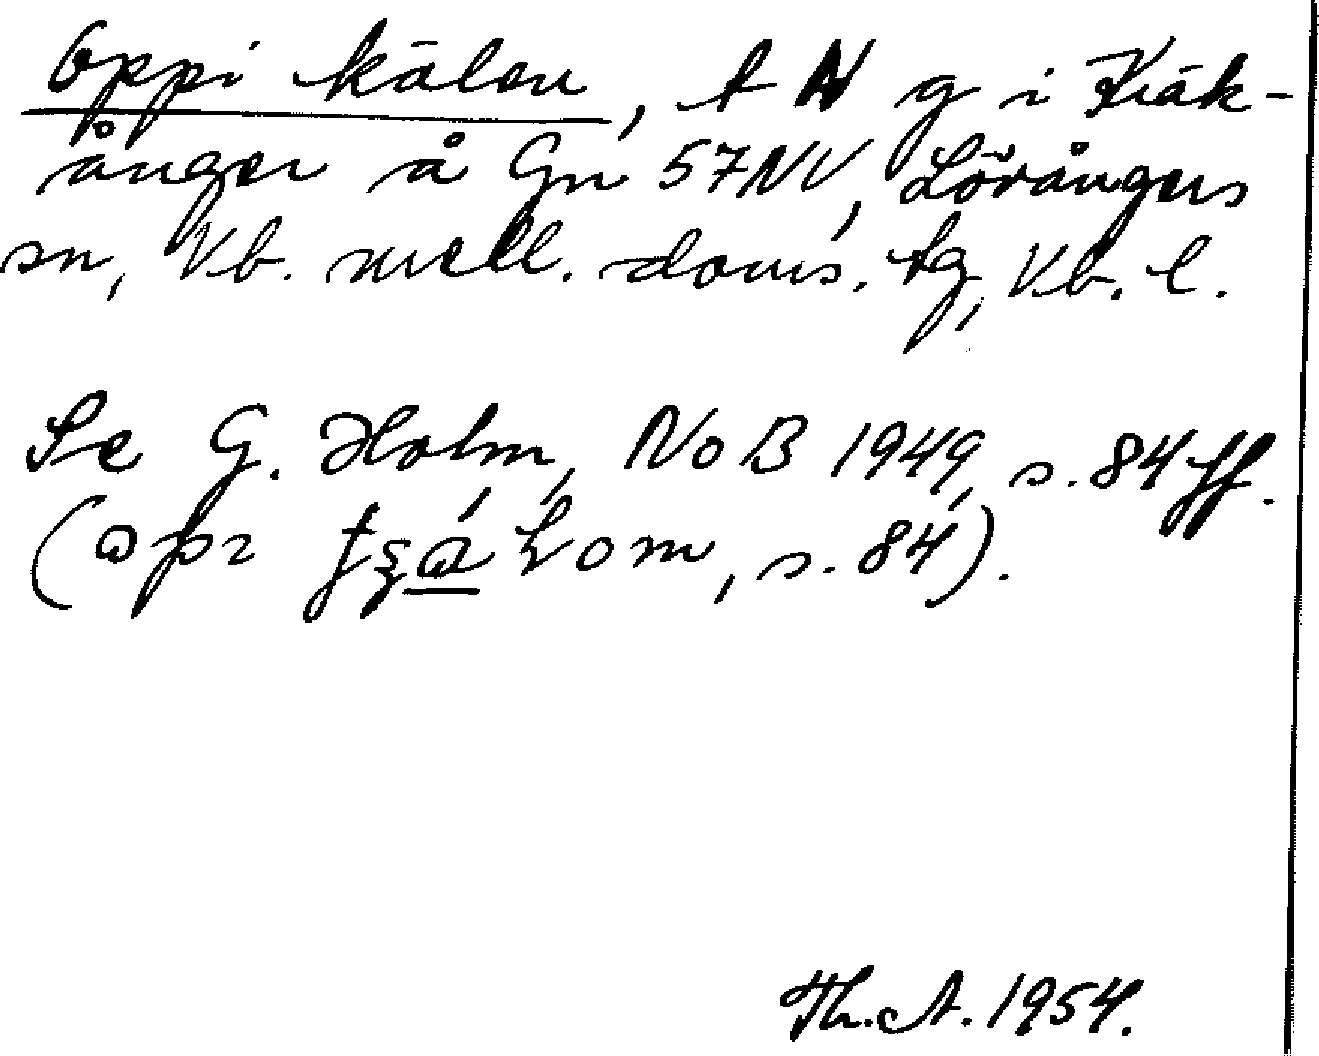 Oppi kālen, t N g i Kräk-
ånger å Gn 57NV, Lövångers
sn, Vb. mell. doms. tg, Vb. l.
Se G. Holm, NoB 1949, s. 84 ff.
s. 84).
Th. A. 1954.